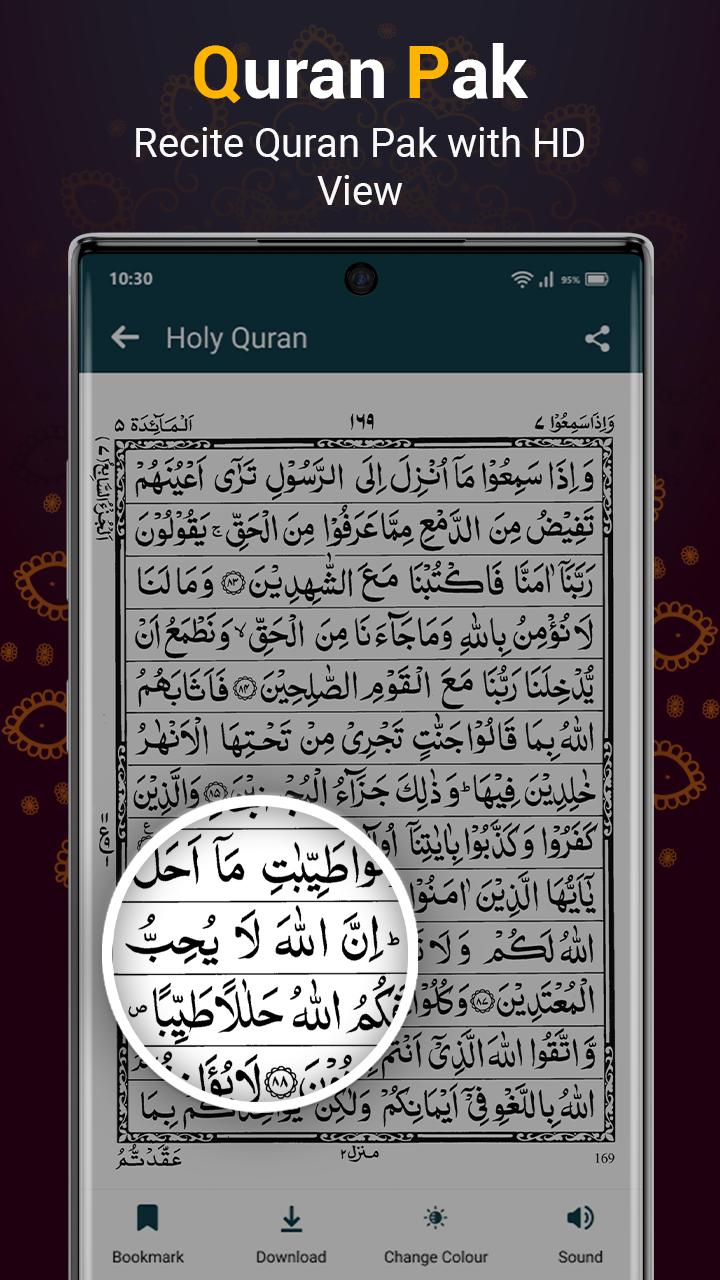 Quran Pak
Recite Quran Pak with HD
View
10:30
95%
Holy Quran
وَاِذَاسَمِعُوْا ٧
١٦٩
اَلْمَآئِدَة ٥
وَاِذَا سَمِعُوْا مَآ اُنْزِلَ اِلَى الرَّسُوْلِ تَرٰٓى اَعْيُنَهُمْ
تَفِيْضُ مِنَ الدَّمْعِ مِمَّا عَرَفُوْا مِنَ الْحَقِّ ۚ يَقُوْلُوْنَ
رَبَّنَآ اٰمَنَّا فَاكْتُبْنَا مَعَ الشّٰهِدِيْنَ ﴿٨٣﴾ وَمَا لَنَا
لَا نُؤْمِنُ بِاللّٰهِ وَمَا جَآءَنَا مِنَ الْحَقِّ ۙ وَنَطْمَعُ اَنْ
يُّدْخِلَنَا رَبُّنَا مَعَ الْقَوْمِ الصّٰلِحِيْنَ ﴿٨٤﴾ فَاَثَابَهُمُ
اللّٰهُ بِمَا قَالُوْا جَنّٰتٍ تَجْرِيْ مِنْ تَحْتِهَا الْاَنْهٰرُ
خٰلِدِيْنَ فِيْهَا ؕ وَذٰلِكَ جَزَآءُ الْمُحْسِنِيْنَ ﴿٨٥﴾ وَالَّذِيْنَ
كَفَرُوْا وَكَذَّبُوْا بِاٰيٰتِنَآ
يٰٓاَيُّهَا الَّذِيْنَ اٰمَنُوْا
طَيِّبٰتِ مَآ اَحَلَّ
اللّٰهُ لَكُمْ وَلَا
ؕ اِنَّ اللّٰهَ لَا يُحِبُّ
الْمُعْتَدِيْنَ ﴿٨٧﴾ وَكُلُوْا
اللّٰهُ حَلٰلًا طَيِّبًا ۪
وَّاتَّقُوا اللّٰهَ الَّذِيْٓ اَنْتُمْ
﴿٨٨﴾
اللّٰهُ بِاللَّغْوِ فِيْٓ اَيْمَانِكُمْ وَلٰكِنْ يُّؤَاخِذُكُمْ بِمَا
عَقَّدْتُّمُ
منزل ٢
169
Bookmark
Download
Change Colour
Sound